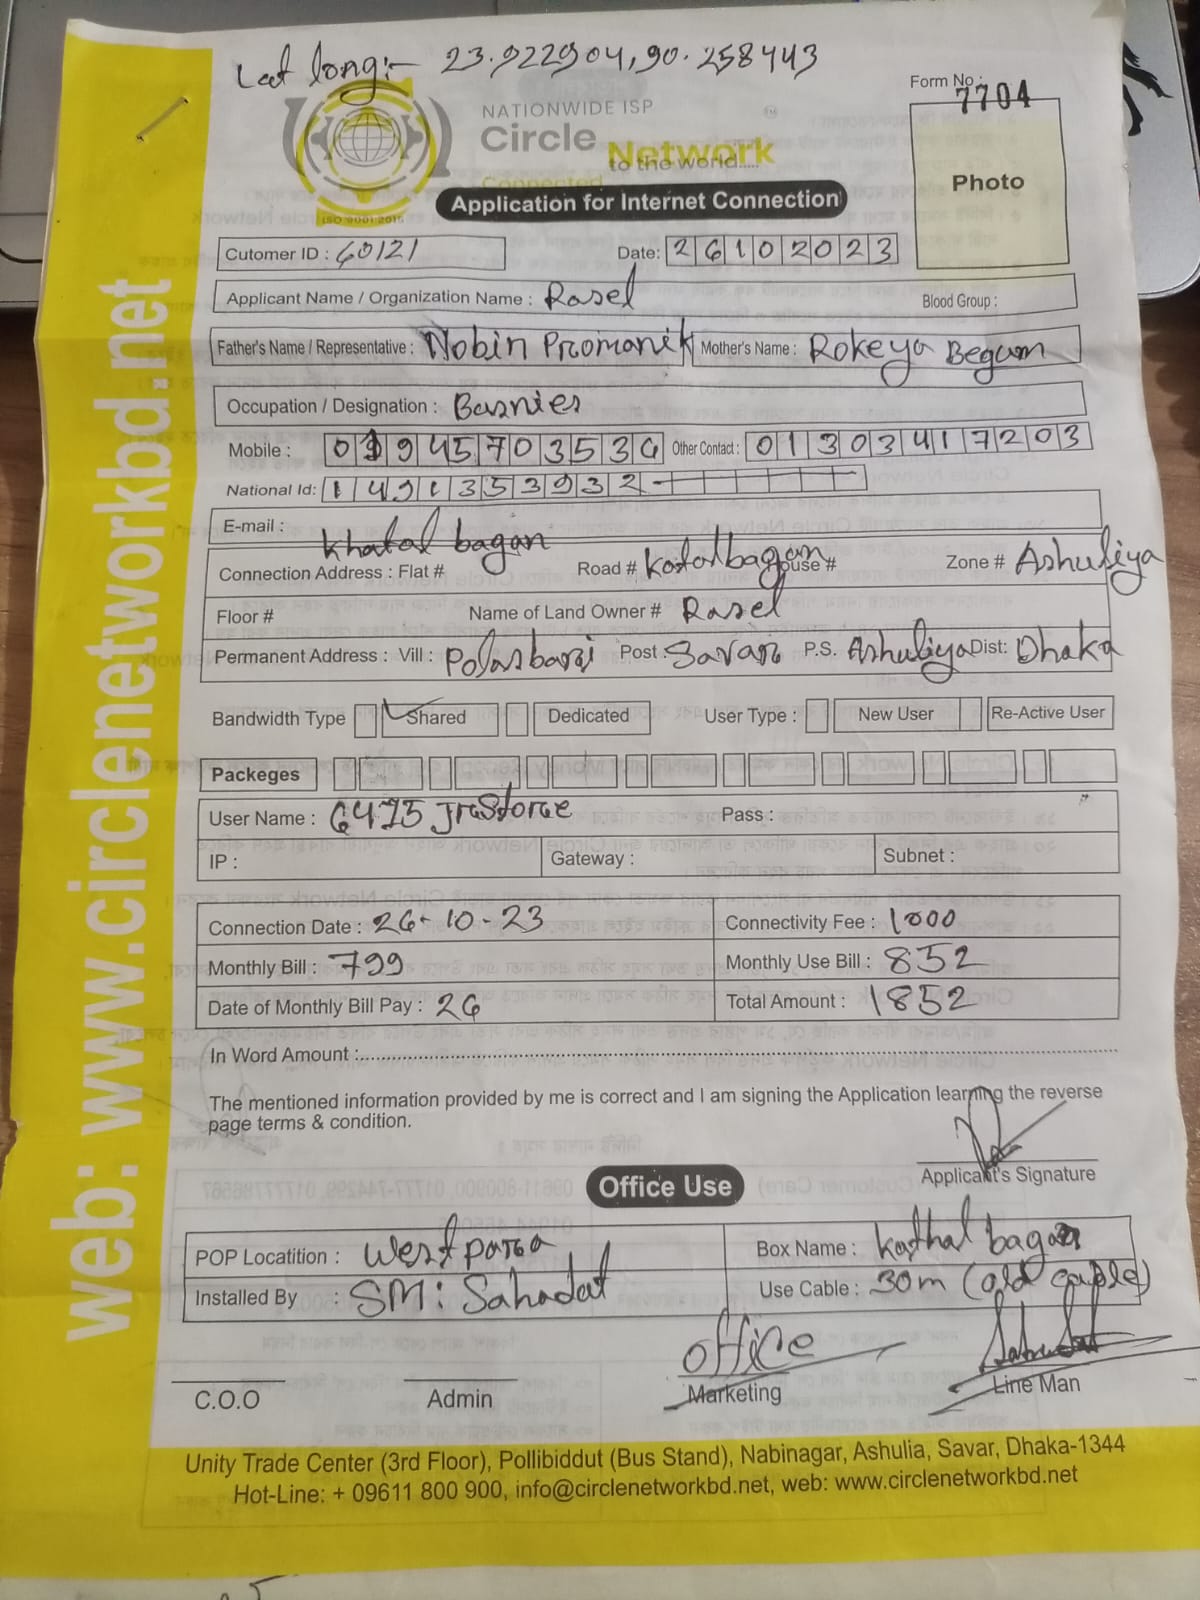 Lat long:- 23.922904,90.258443
Form No.: 7704
NATIONWIDE ISP
Circle Network
Connected to the world.....
ISO 9001:2015
Photo
Application for Internet Connection
Cutomer ID : 60121 Date: 26102023
Applicant Name / Organization Name : Rasel Blood Group :
Father's Name / Representative : Nobin Promanik Mother's Name : Rokeya Begum
Occupation / Designation : Basnies
Mobile : 01945703536 Other Contact : 01303417203
National Id: 1491353932-
E-mail :
Khatal bagan
Connection Address : Flat # Road # Katalbagan House # Zone # Ashuliya
Floor # Name of Land Owner # Rasel
Permanent Address : Vill : Polasbari Post : Savar P.S. Ashuliya Dist: Dhaka
Bandwidth Type Shared Dedicated User Type : New User Re-Active User
Packeges
User Name : 6475 JRStore Pass :
IP : Gateway : Subnet :
Connection Date : 26-10-23 Connectivity Fee : 1000
Monthly Bill : 799 Monthly Use Bill : 852
Date of Monthly Bill Pay : 26 Total Amount : 1852
In Word Amount :
The mentioned information provided by me is correct and I am signing the Application learning the reverse
page terms & condition.
Applicant's Signature
Office Use
POP Locatition : West para Box Name : Kathal bagan
Installed By : SM: Sahadat Use Cable : 30m (old cable)
office
C.O.O Admin Marketing Line Man
Unity Trade Center (3rd Floor), Pollibiddut (Bus Stand), Nabinagar, Ashulia, Savar, Dhaka-1344
Hot-Line: + 09611 800 900, info@circlenetworkbd.net, web: www.circlenetworkbd.net
web: www.circlenetworkbd.net